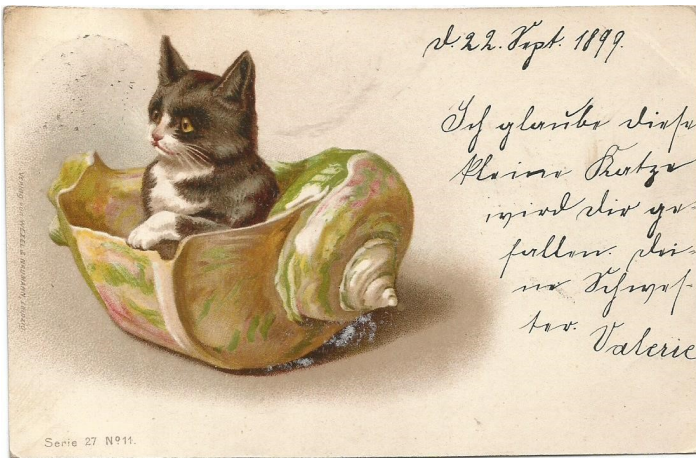 d. 22. Sept. 1899.
Ich glaube diese
kleine Katze
wird dir ge-
fallen. Dei-
ne Schwes-
ter. Valerie
Verlag von WEZEL & NAUMANN, LEIPZIG.
Serie 27 Nº 11.